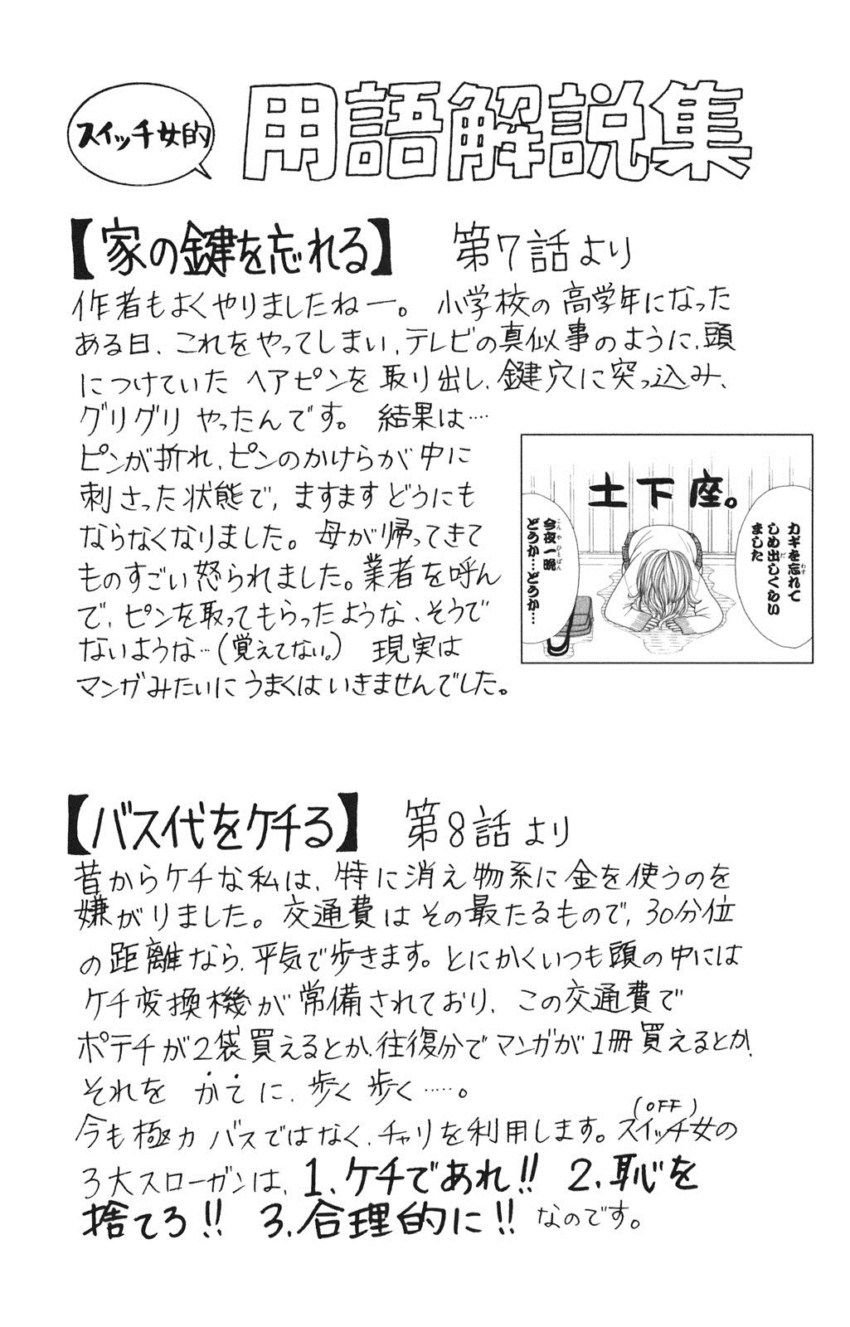 スイッチ女的
用語解説集
【家の鍵を忘れる】 第7話より
作者もよくやりましたねー。 小学校の高学年になった
ある日、これをやってしまい、テレビの真似事のように、頭
につけていた ヘアピンを 取り出し、鍵穴に突っ込み、
グリグリ やったんです。 結果は…
ピンが折れ、ピンのかけらが 中に
刺さった状態で、ますます どうにも
ならなくなりました。 母が帰ってきて
ものすごい怒られました。業者を呼ん
で、ピンを取ってもらったような、そうで
ないような…(覚えてない。) 現実は
マンガみたいに うまくは いきませんでした。
土下座。
カギを忘れて
しめ出しくらい
ました
今夜一晩
どうか…どうか…
【バス代をケチる】 第8話より
昔からケチな私は、特に消え物系に金を使うのを
嫌がりました。交通費は その最たるもので、30分位
の距離なら、平気で歩きます。とにかくいつも頭の中には
ケチ変換機が 常備されており、この交通費で
ポテチが2袋買えるとか、往復分で マンガが1冊買えるとか、
それを かてに、歩く 歩く……。
今も極力 バスではなく、チャリを利用します。スイッチ女(OFF)の
3大スローガンは、1、ケチであれ!! 2、恥を
捨てろ!! 3、合理的に!! なのです。